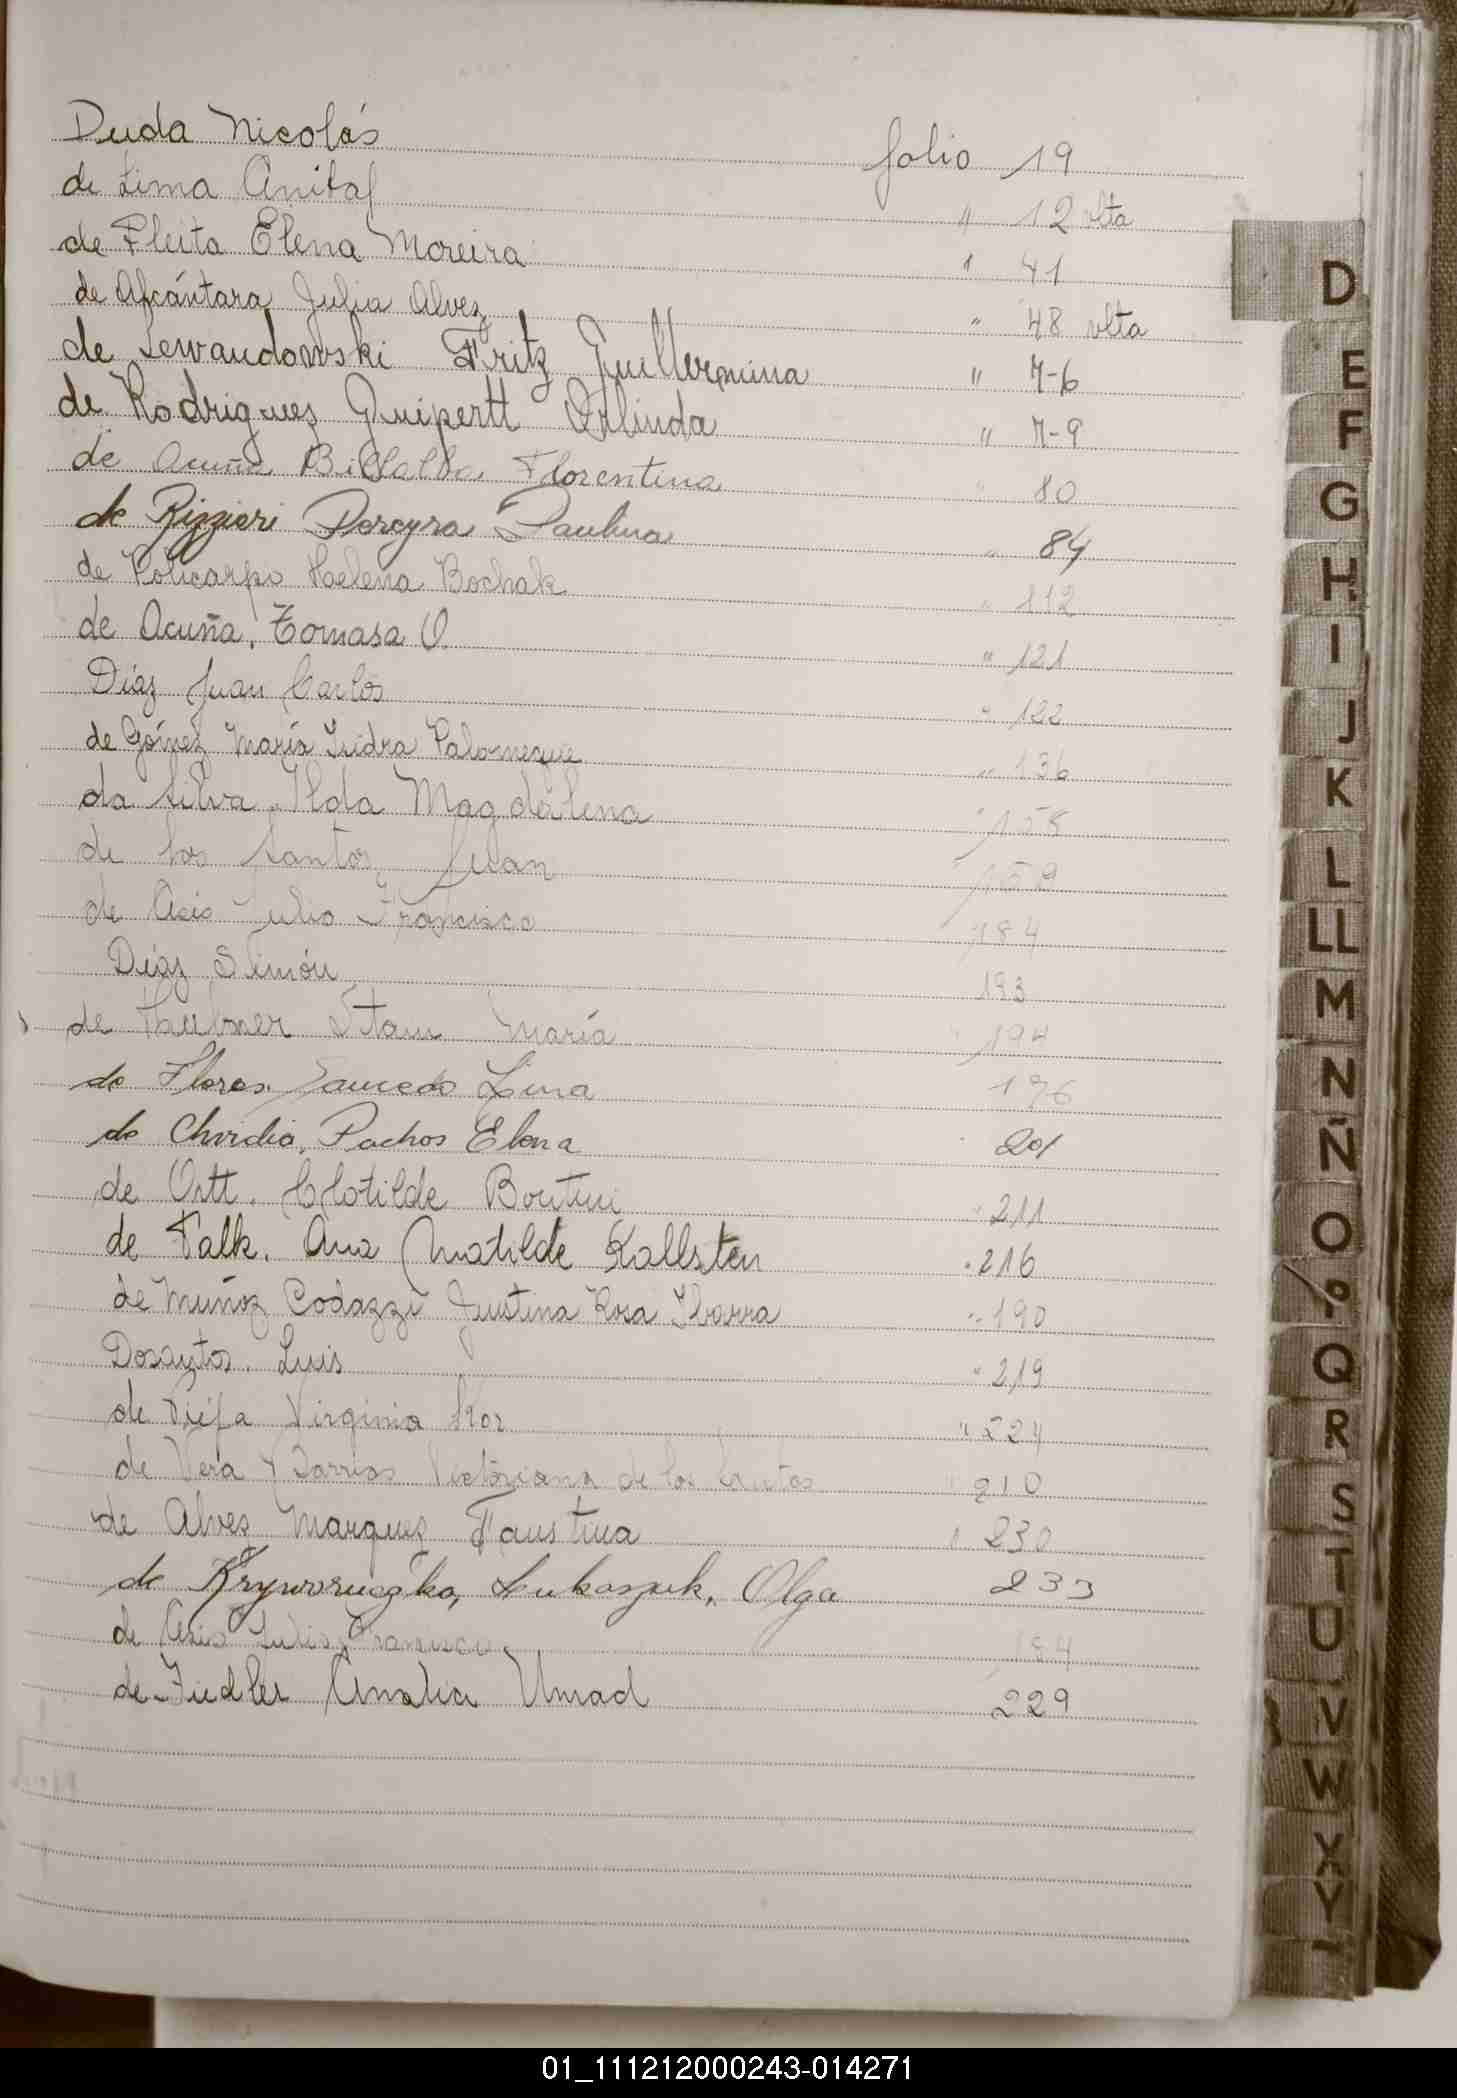 Duda Nicolás folio 19
de Lima Anita " 12 vlta
de Fleita Elena Moreira " 41
de Alcántara Julia Alvez " 48 vlta
de Lewandowski Fritz Guillermina " 76
de Rodriguez Guipertt Orlinda " 79
de Acuña Billalba Florentina " 80
de Rizzieri Pereyra Paulina " 84
de Policarpo Helena Bochak " 112
de Acuña, Tomasa O. " 121
Díaz Juan Carlos " 122
de Gómez María Isidra Palomeque " 136
da Silva Ilda Magdalena " 158
de los Santos Juan 159
de Asis Julio Francisco 184
Díaz Simón 193
de Haubner Stam María " 194
de Flores Saucedo Lina 196
de Chividia, Pachos Elena 201
de Ortt. Clotilde Bontui " 211
de Falk. Ana Matilde Kallsten " 216
de Muñoz Codazzi Justina Rosa Ibarra " 190
Dosantos. Luis " 219
de Virginia " 224
de Vera y Barrios Victoriana de los Santos " 210
de Alvez Marquez Faustina " 230
de Kryworuczko, Lukaszuk, Olga 233
de Asis Julio Francisco. 184
de Fiedler Analia Umad 229
D
E
F
G
H
I
J
K
L
LL
M
N
Ñ
O
P
Q
R
S
T
U
V
W
X
Y
01_111212000243-014271